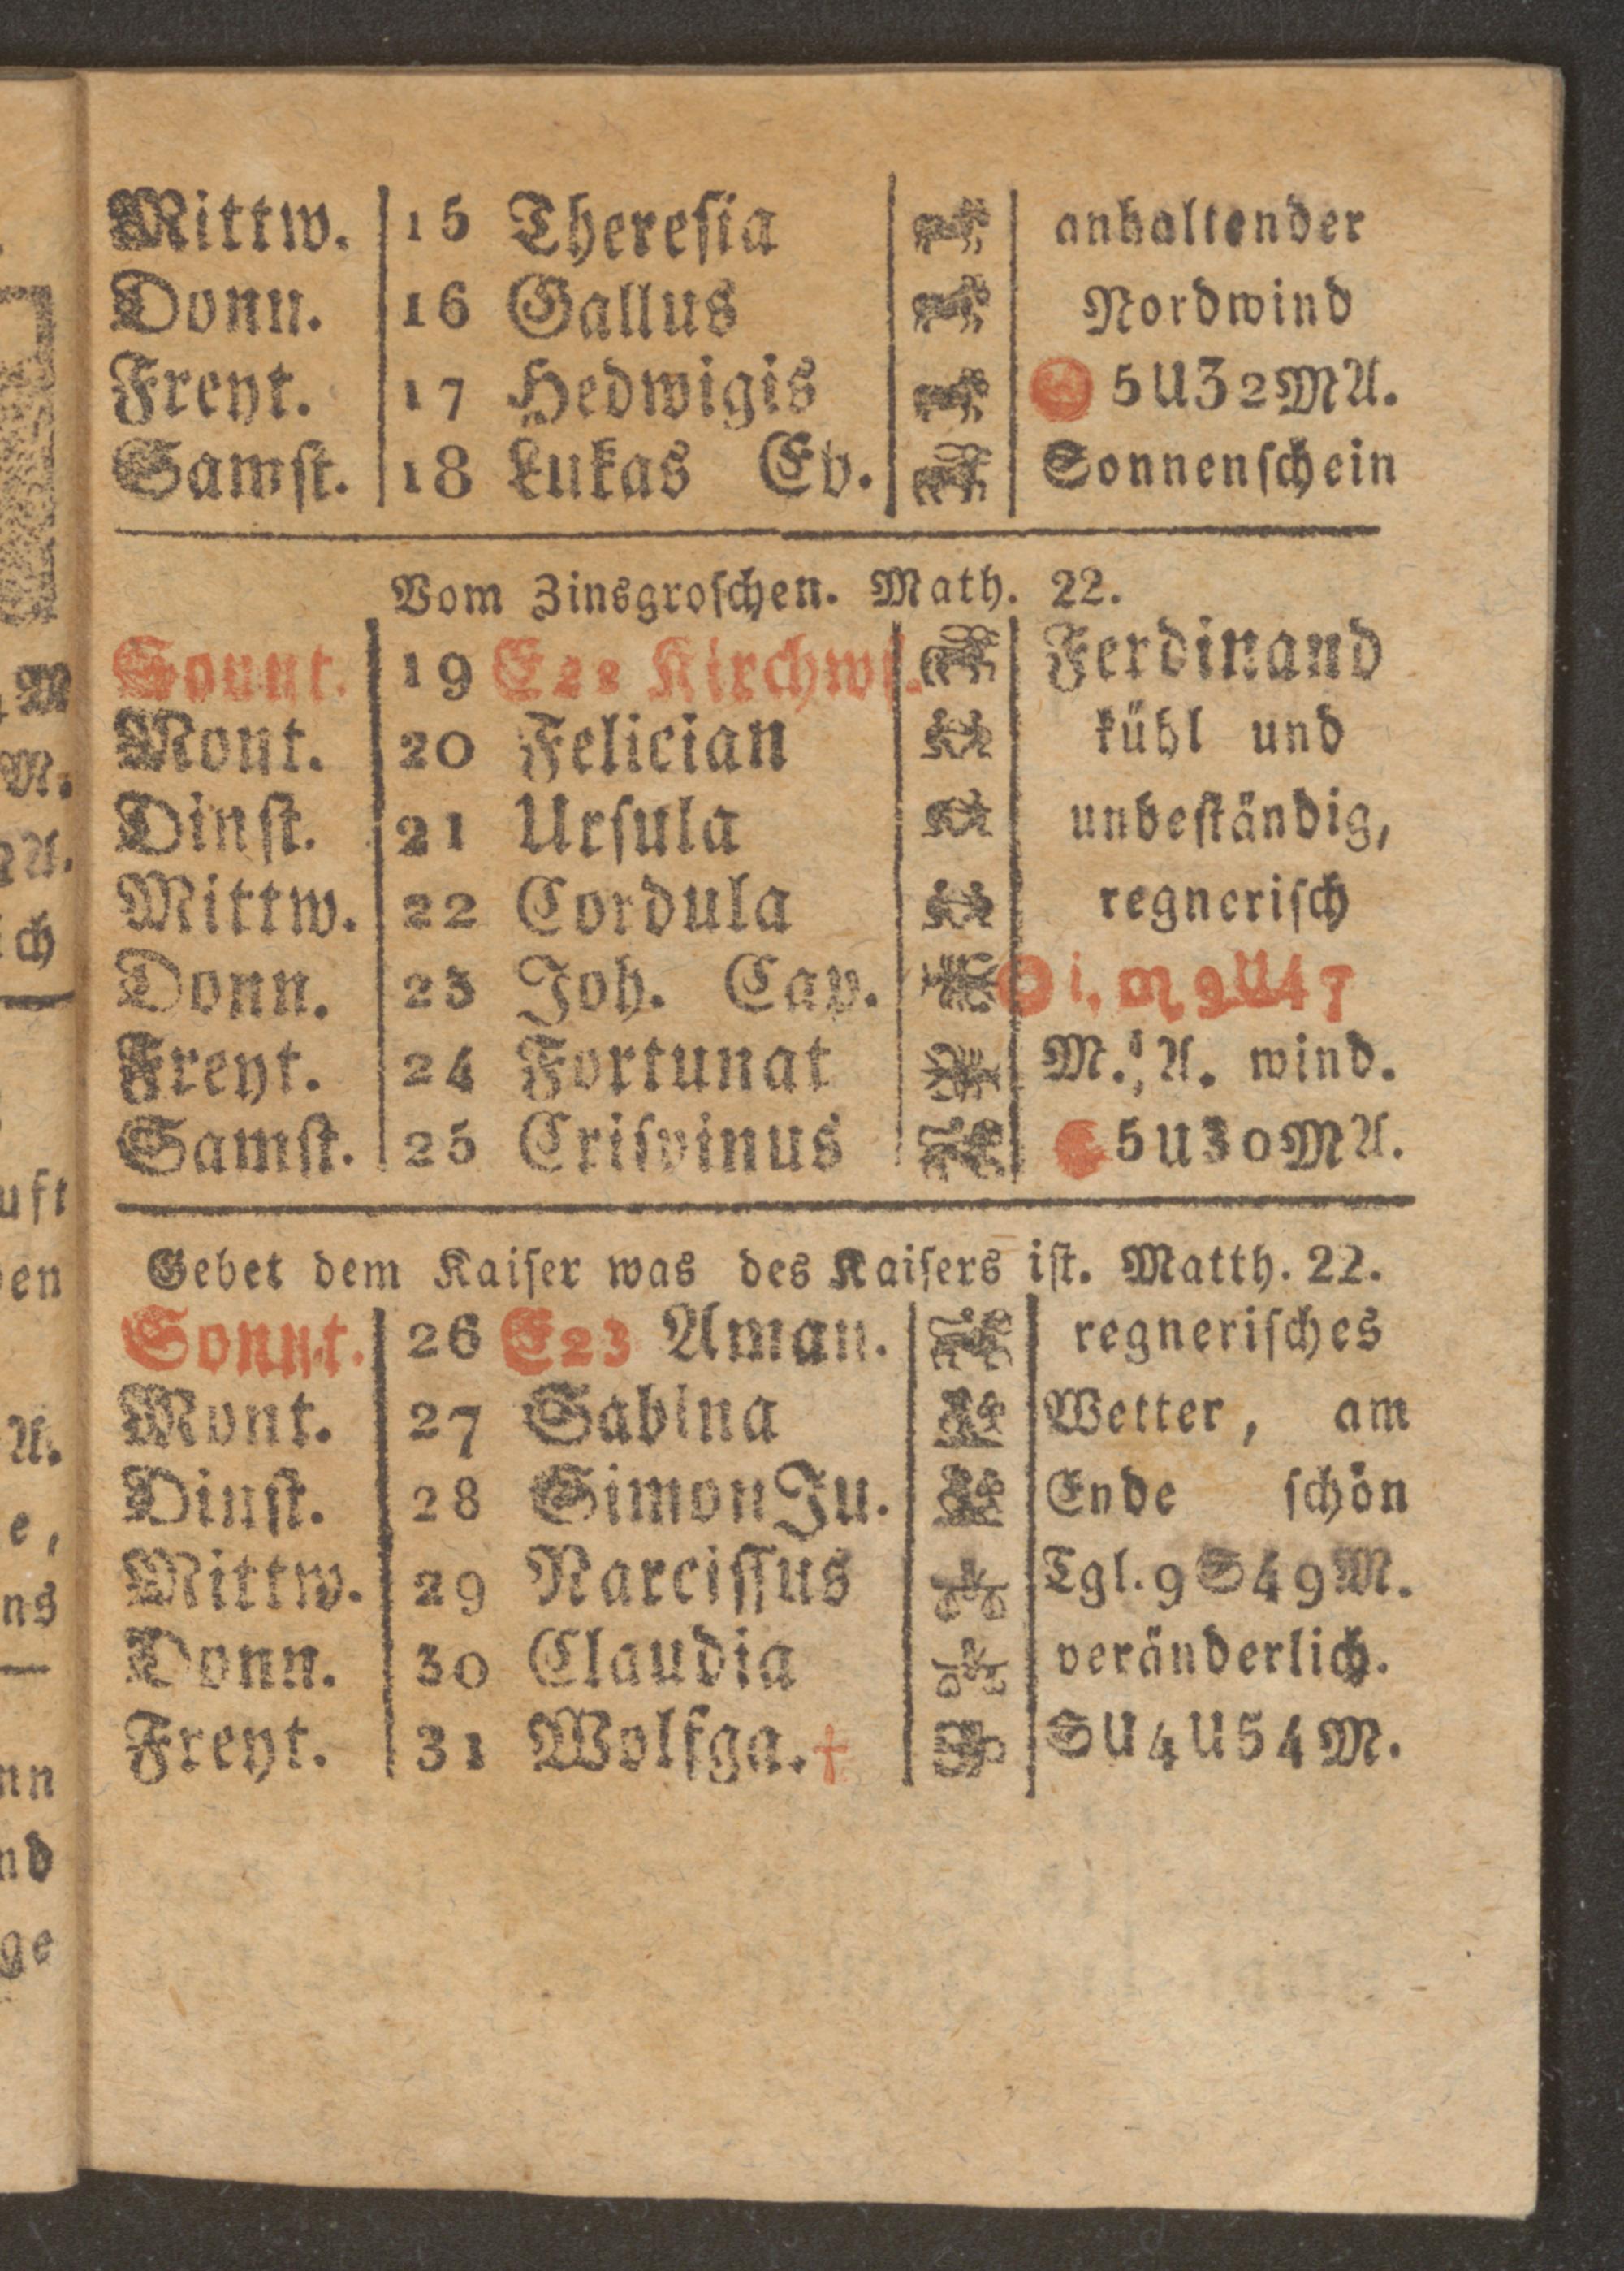 Mittw. 15 Thereſia anhaltender
Donn. 16 Gallus Nordwind
Freyt. 17 Hedwigis 5U32MA.
Samſt. 18 Lukas Ev. Sonnenſchein
Vom Zinsgroſchen. Math. 22.
Sonnt. 19 E22 Kirchw. Ferdinand
Mont. 20 Felician kühl und
Dinſt. 21 Urſula unbeſtändig,
Mittw. 22 Cordula regneriſch
Donn. 23 Joh. Cap. ☉ i. ♏ 9U47
Freyt. 24 Fortunat M. A. wind.
Samſt. 25 Criſpinus ☾ 5U30MA.
Gebet dem Kaiſer was des Kaiſers iſt. Matth. 22.
Sonnt. 26 E23 Aman. regneriſches
Mont. 27 Sabina Wetter, am
Dinſt. 28 Simon Ju. Ende ſchön
Mittw. 29 Narciſſus Tgl. 9S49M.
Donn. 30 Claudia veränderlich.
Freyt. 31 Wolfga. † SU4U54M.